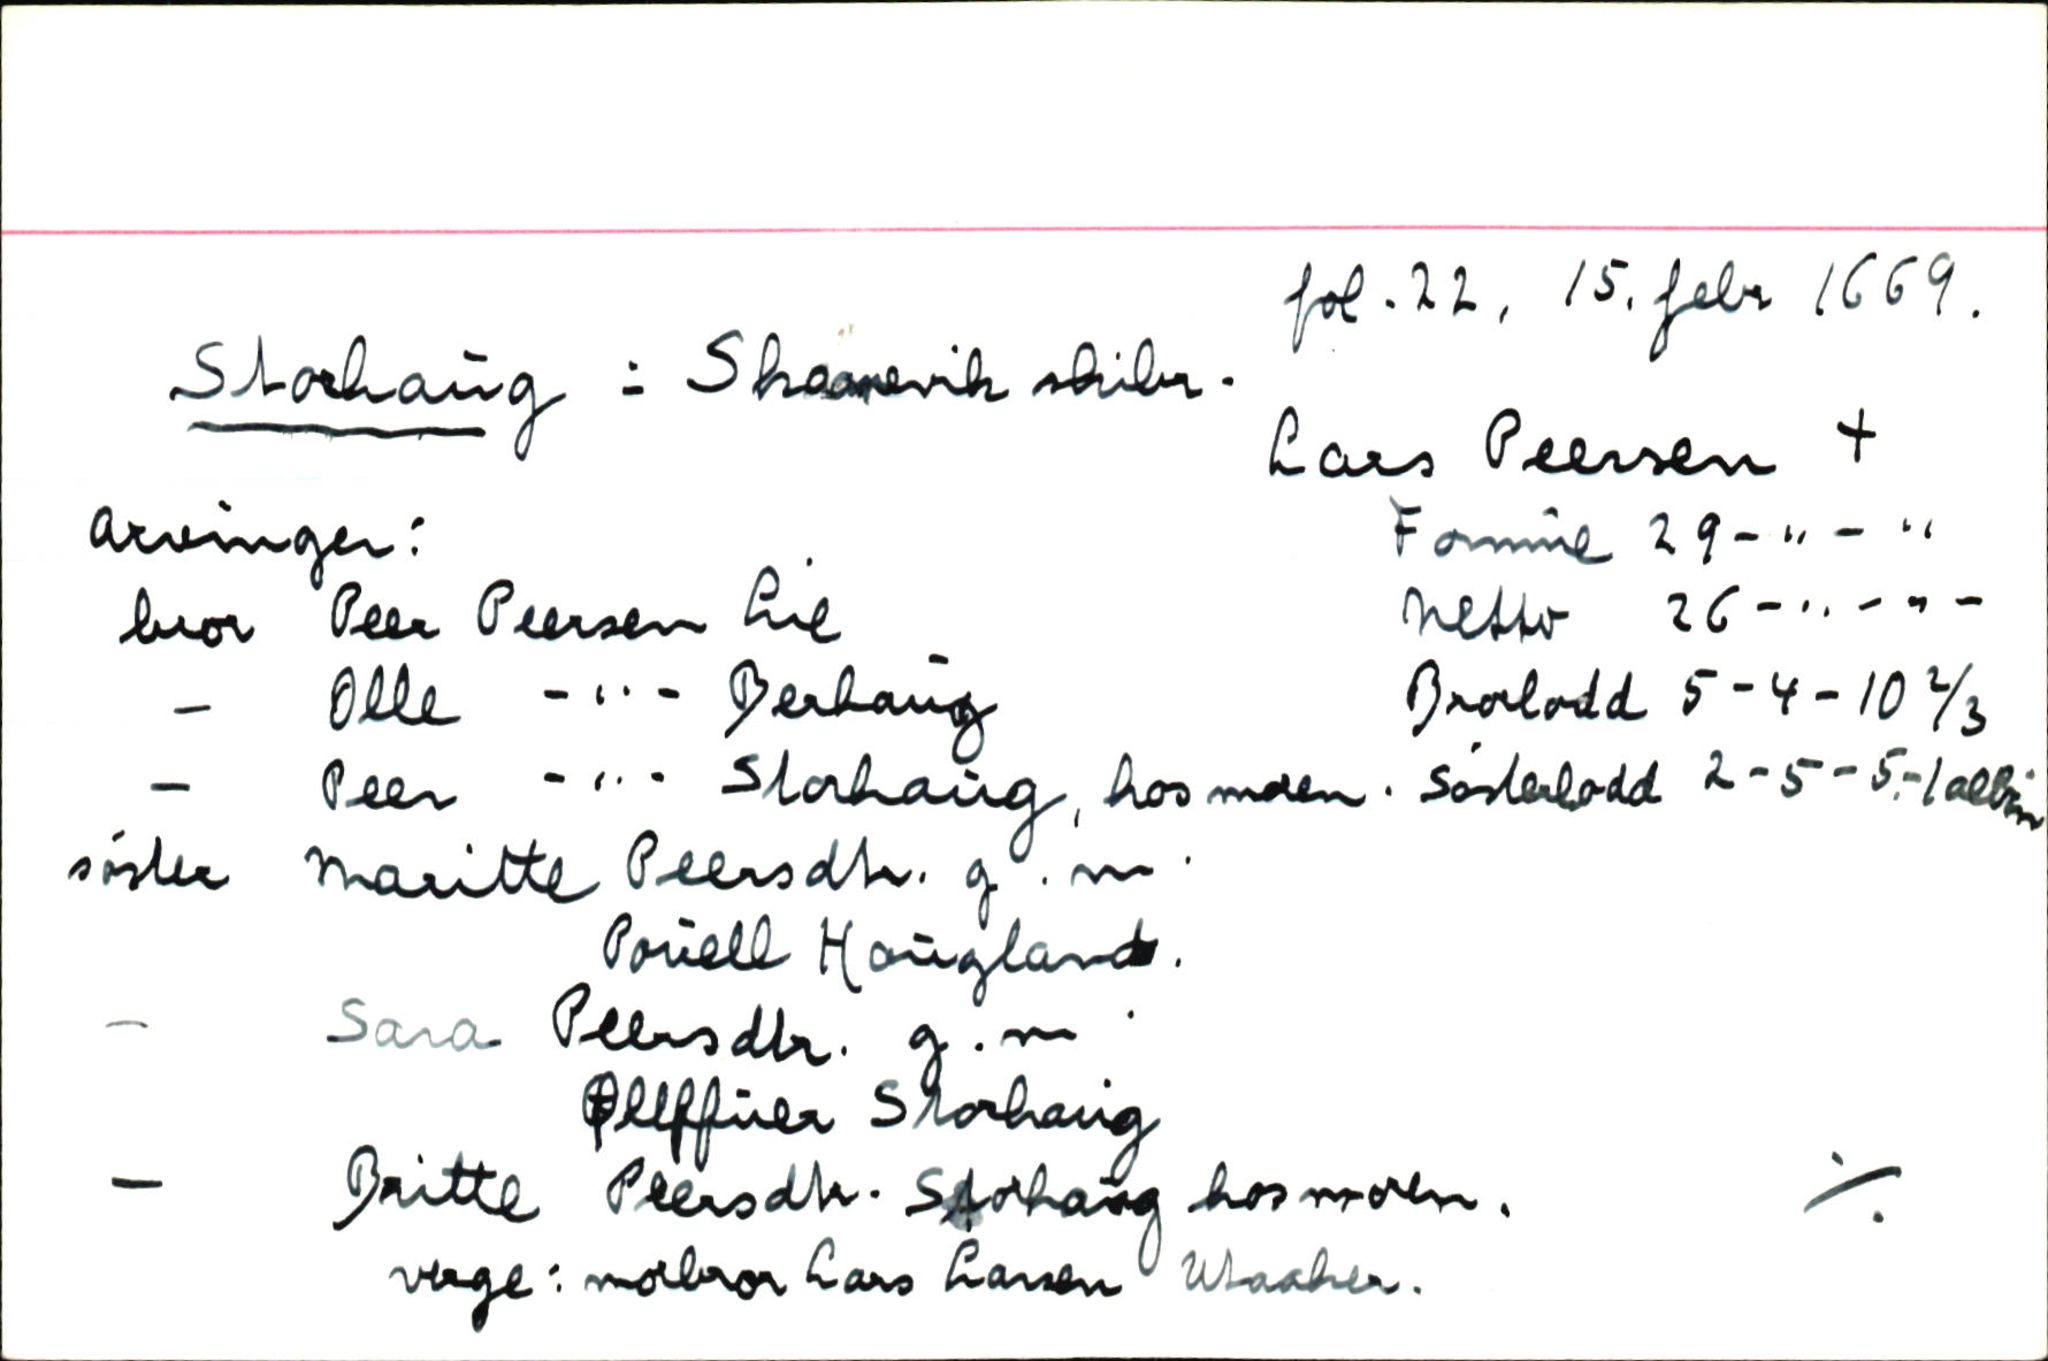 fol. 22, 15. febr 1669.
Storhaug : Skaanevik skibr.
Lars Peersen +
Arvinger:
Formue 29 - " - "
bror Peer Peersen Lie
Netto 26 - " - " -
- Olle - " - Berhaug
Brorlodd 5 - 4 - 10 2/3
- Peer - " - Storhaug, hos moren.
Søsterlodd 2 - 5 - 5 - 1 albin
søster Maritte Peersdtr. g. m.
Pouell Hougland.
- Sara Peersdtr. g. m.
Olleffuer Storhaug
- Britte Peersdtr. Storhaug hos moren.
⁒
verge: morbror Lars Larsen Utaaker.